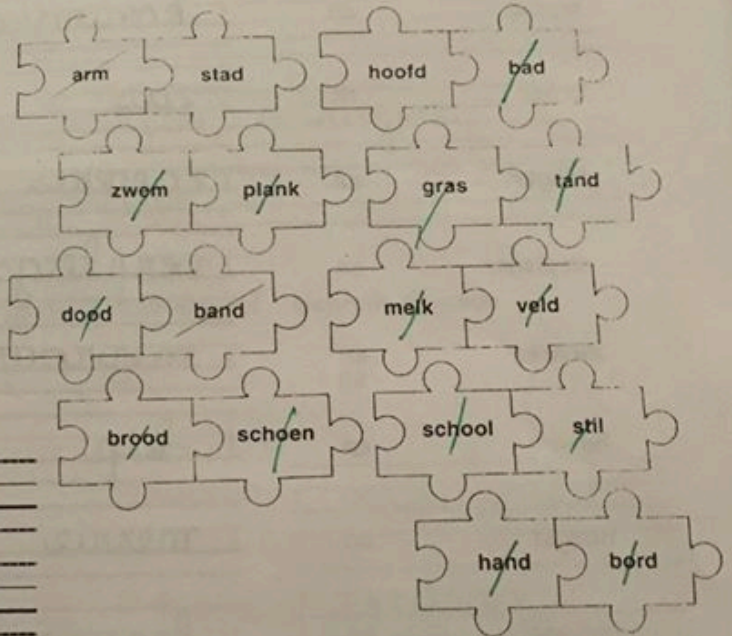 arm stad hoofd bad
zwem plank gras tand
dood band melk veld
brood schoen school stil
hand bord